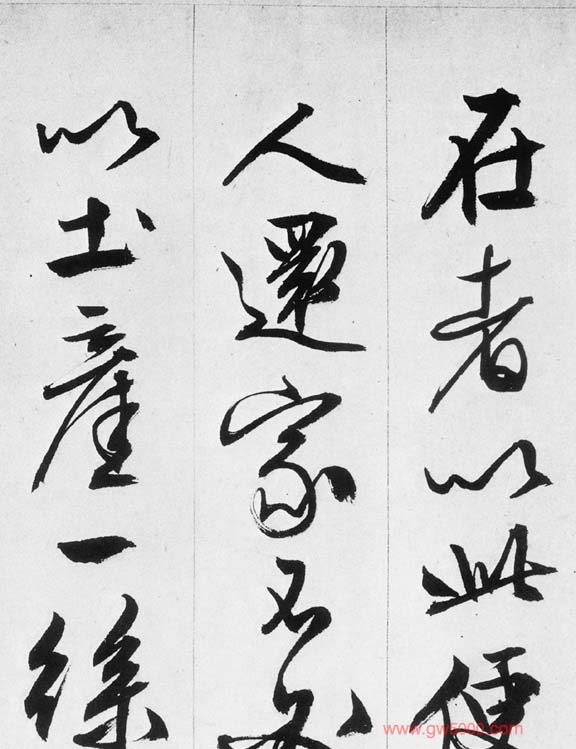 在者以此
人還家不
以土產一
www.gw5000.com